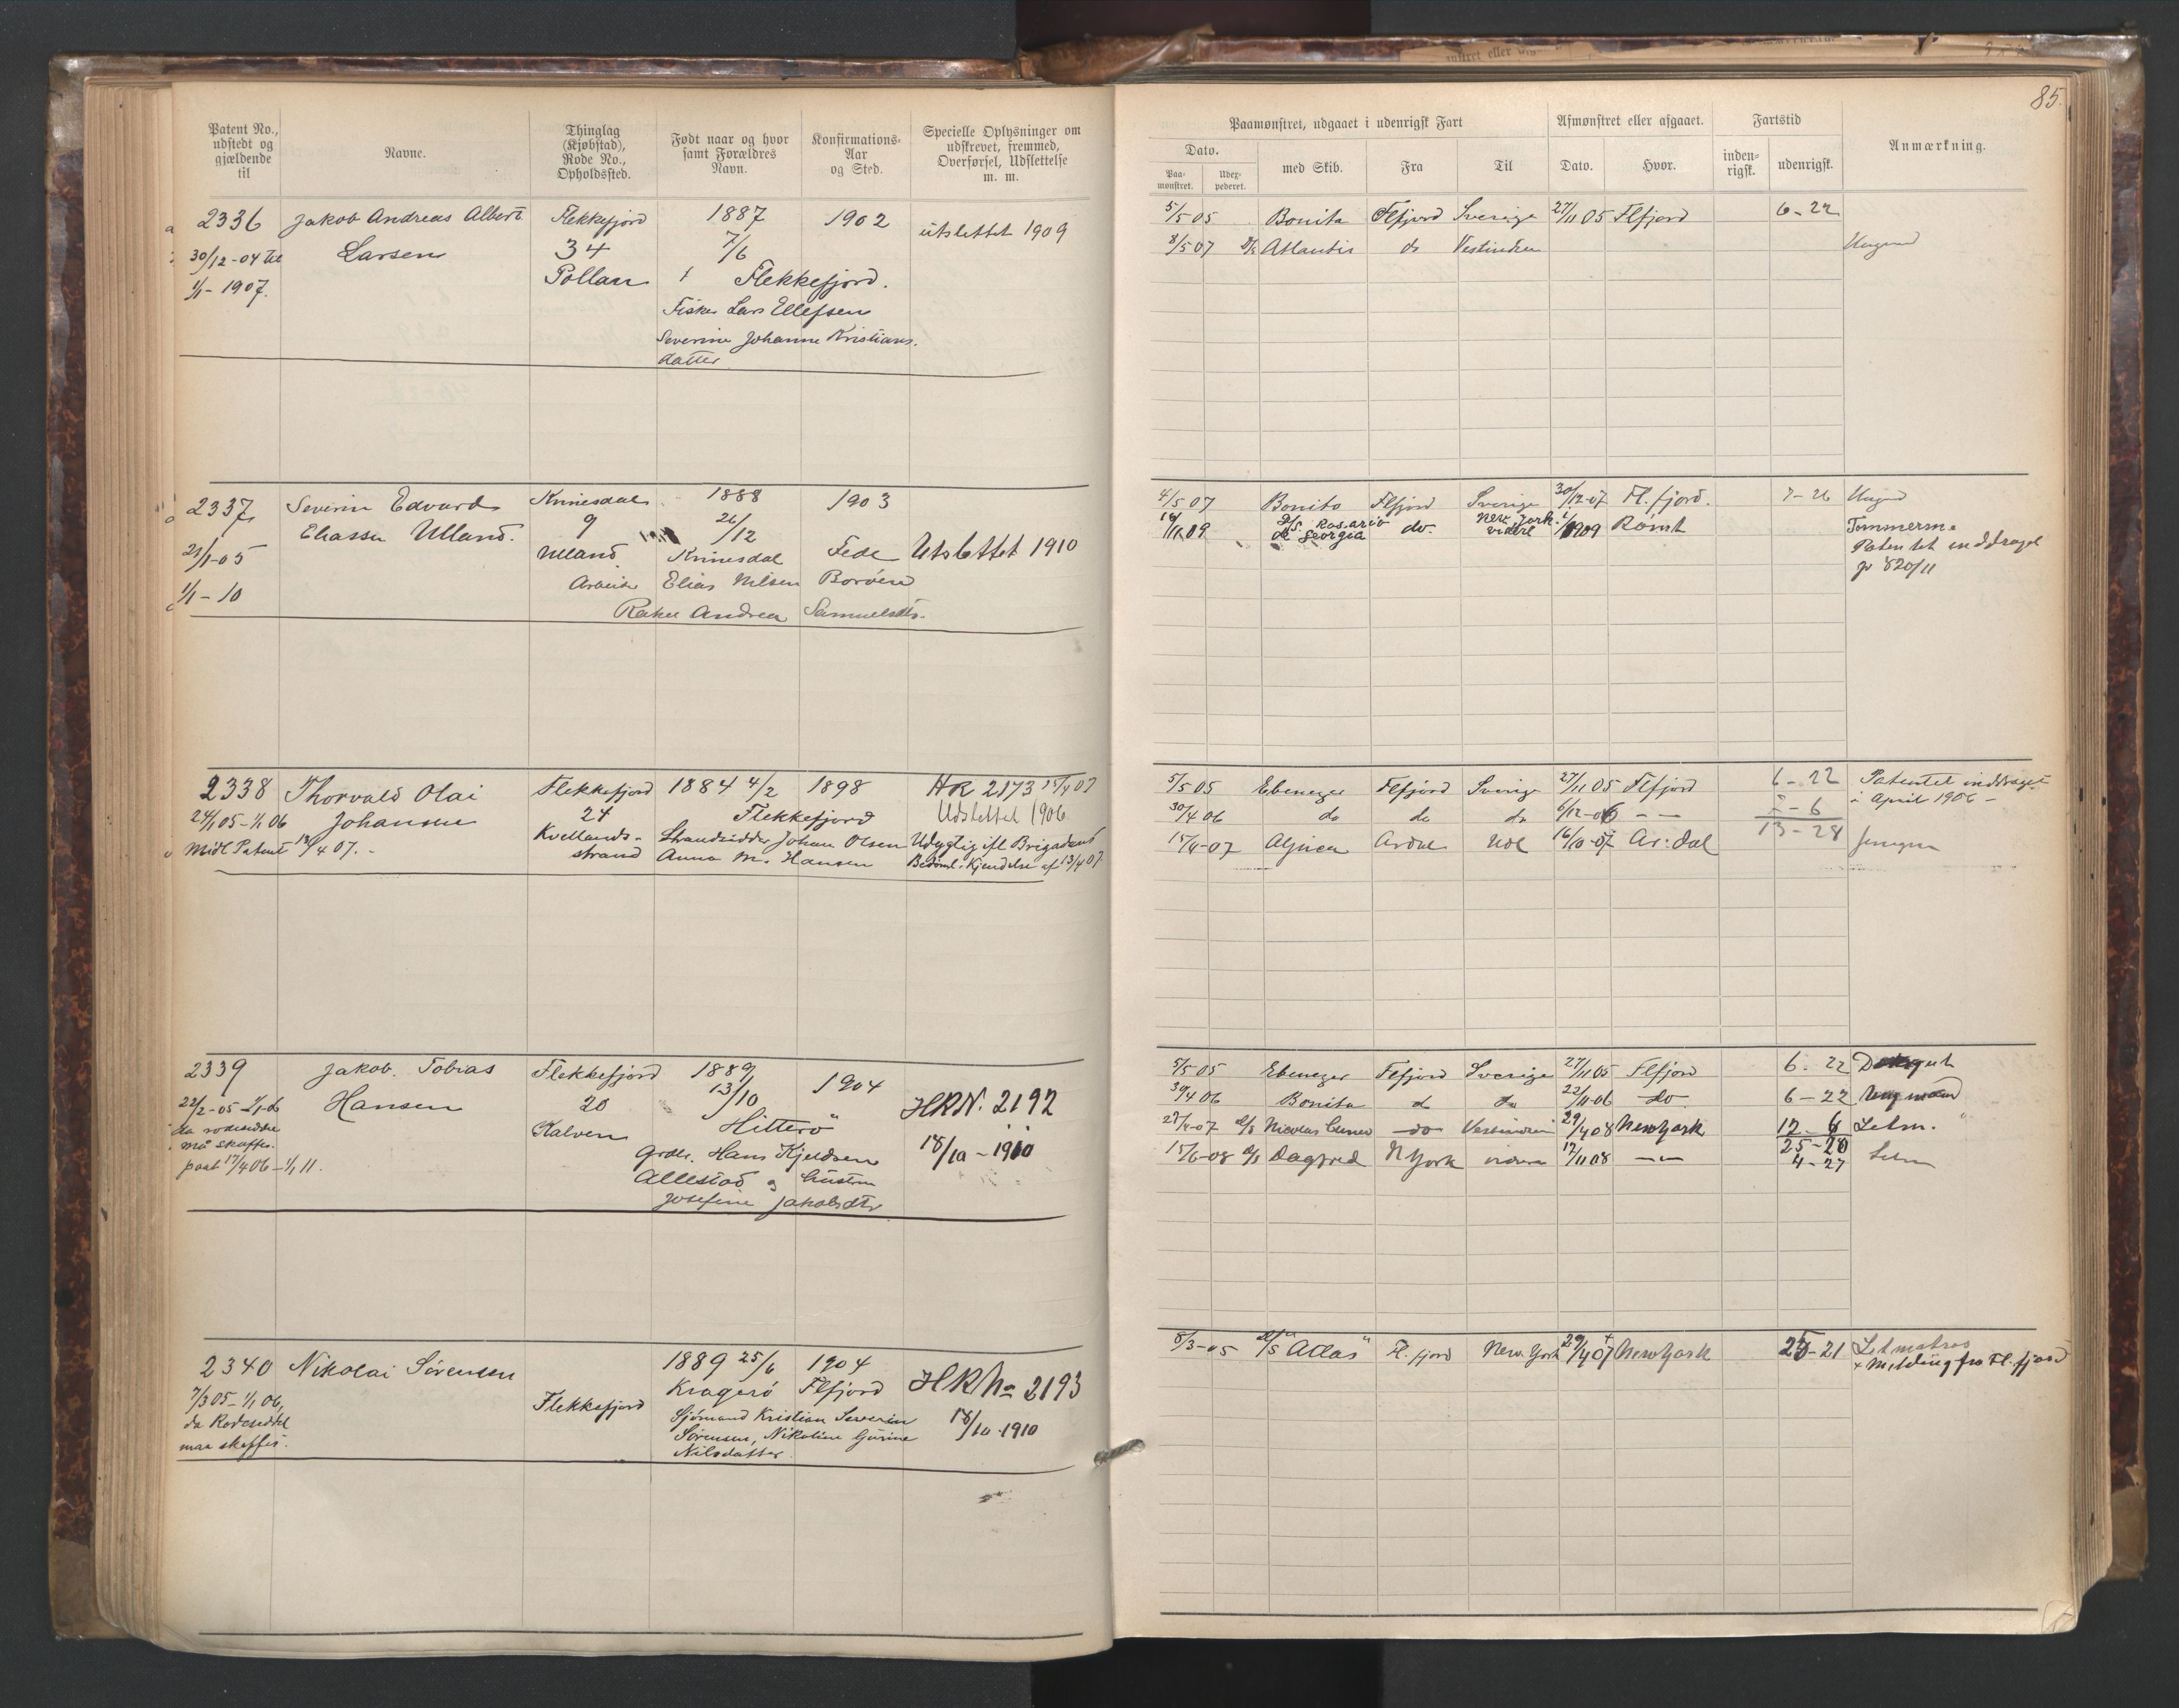 85.
Patent No., udstedt og gjældende til
Navne.
Thinglag (Kjøbstad), Rode No., Opholdssted.
Født naar og hvor samt Forældres Navn.
Konfirmations-Aar og Sted.
Specielle Oplysninger om udskrevet, fremmed, Overførsel, Udslettelse m. m.
Paamønstret, udgaaet i udenrigsk Fart
Dato.
Paa-mønstret.
Udex-pederet.
med Skib.
Fra
Til
Afmønstret eller afgaaet.
Dato.
Hvor.
Fartstid
inden-rigsk.
udenrigsk.
Anmærkning.
2336 Jakob Andreas Albert Flekkefjord 1887 1902 utslettet 1909
30/12-04 til Larsen 34 7/6
1/1-1907. Pollan Flekkefjord.
Fisker Lars Ellefsen
Severine Johanne Kristians.
datter
5/5 05 Bonita Flfjord Sverige 27/11 05 Flfjord 6-22
8/5 07 D/S Atlantis do Vestindien Ungmd
2337 Severin Edvard Kvinesdal 1888 1903
Eliassen Ulland. 9 26/12
21/1-05 Ulland Kvinesdal Fede Utslettet 1910
1/1-10 Arbeider Elias Nilsen Borøen
Rakel Andrea Samuelsdtr.
4/5 07 Bonito Flfjord Sverige 30/12-07 Fl.fjord. 7-26 Ungmd
16/11 09 D/S. Rosario di Georgia do. New York videre 1/1909 Rømt Tømmerm.
Patentet inddraget
jr 820/11
2338 Thorvald Olai Flekkefjord 1884 4/2 1898 HR 2173 15/4 07
24/1 05-1/1 06 Johansen 24 Flekkefjord Udslettet 1906
Midl Patent 13/4 07.- Kvellands- Strandsidder Johan Olsen Udygtig ifl Brigadens
strand Anna M. Hansen Bedømt. Kjendelse af 13/4 07
5/5 05 Ebenezer Flfjord Sverige 27/11 05 Flfjord 6-22 Patentet inddraget
30/4 06 do do do 6/12-06 - - 7-6 i April 1906-
13-28
15/4-07 Ardal Udl 16/10-07 Ar:dal Jungm
2339 Jakob Tobias Flekkefjord 1889 1904
22/2-05 Hansen 20 13/10 HRN. 2192
da rodeseddel
må skaffes. Kalven Hitterø 18/10-1910
paat 17/4 06-1/1 11. Grdbr. Hans Kjeldsen
Allestad og hustru
Josefine Jakobsdtr
5/5 05 Ebenezer Flfjord Sverige 27/11 05 Flfjord 6-22
30/4 06 Bonita do do 22/11-06 do 6-22 Ungmand
27/4-07 D/S Nicolas Cuneo do Vestindien 29/4 08 New York 12-6 Letm.
25-20
15/6-08 D/S Dagfred N York videre 12/11 08 - - 4-27 Letm
2340 Nikolai Sørensen 1889 25/6 1904 HR No 2193
7/3 05-1/1 06, Flekkefjord Kragerø Flfjord
da Rodeseddel Sjømand Kristian Severin 18/10-1910
maa skaffes. Sørensen, Nikoline Gurine
Nilsdatter
8/3-05 D/S "Atlas" Fl.fjord New York 29/4 07 New York 25-21 Letmatros
+ Melding fra Fl.fjord